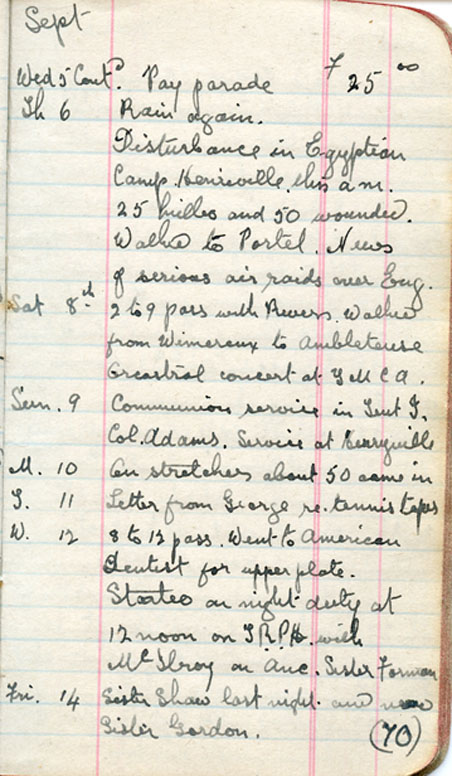 Sept
Wed 5 Contd. Pay parade F 25 00
Th 6 Rain again.
Disturbance in Egyptian
Camp. Henriville, this a.m.
25 killed and 50 wounded.
Walked to Portel. News
of serious air raids over Eng.
Sat 8th 2 to 9 pass with Rivers. Walked
from Wimereux to Ambleteuse
concert at Y M C A.
Sun. 9 Communion service in Tent
Col. Adams. Service at
M. 10 On stretchers about 50 came in
T. 11 Letter from George re. tennis tapes
W. 12 8 to 12 pass. Went to American
Dentist for upper plate.
Started on night duty at
12 noon on with
McIlroy on Sister Forman
Fri. 14 Sister Shaw last night and
Sister Gordon. (70)